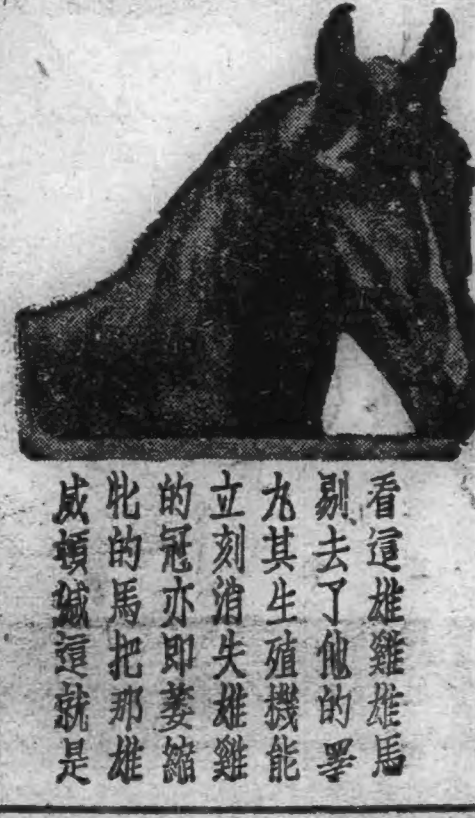 看這雄雞雄馬
剔去了他的睪
九其生殖機能
立刻消失雄雞
的冠亦即萎縮
牝的馬把那雄
威頓緘這就是